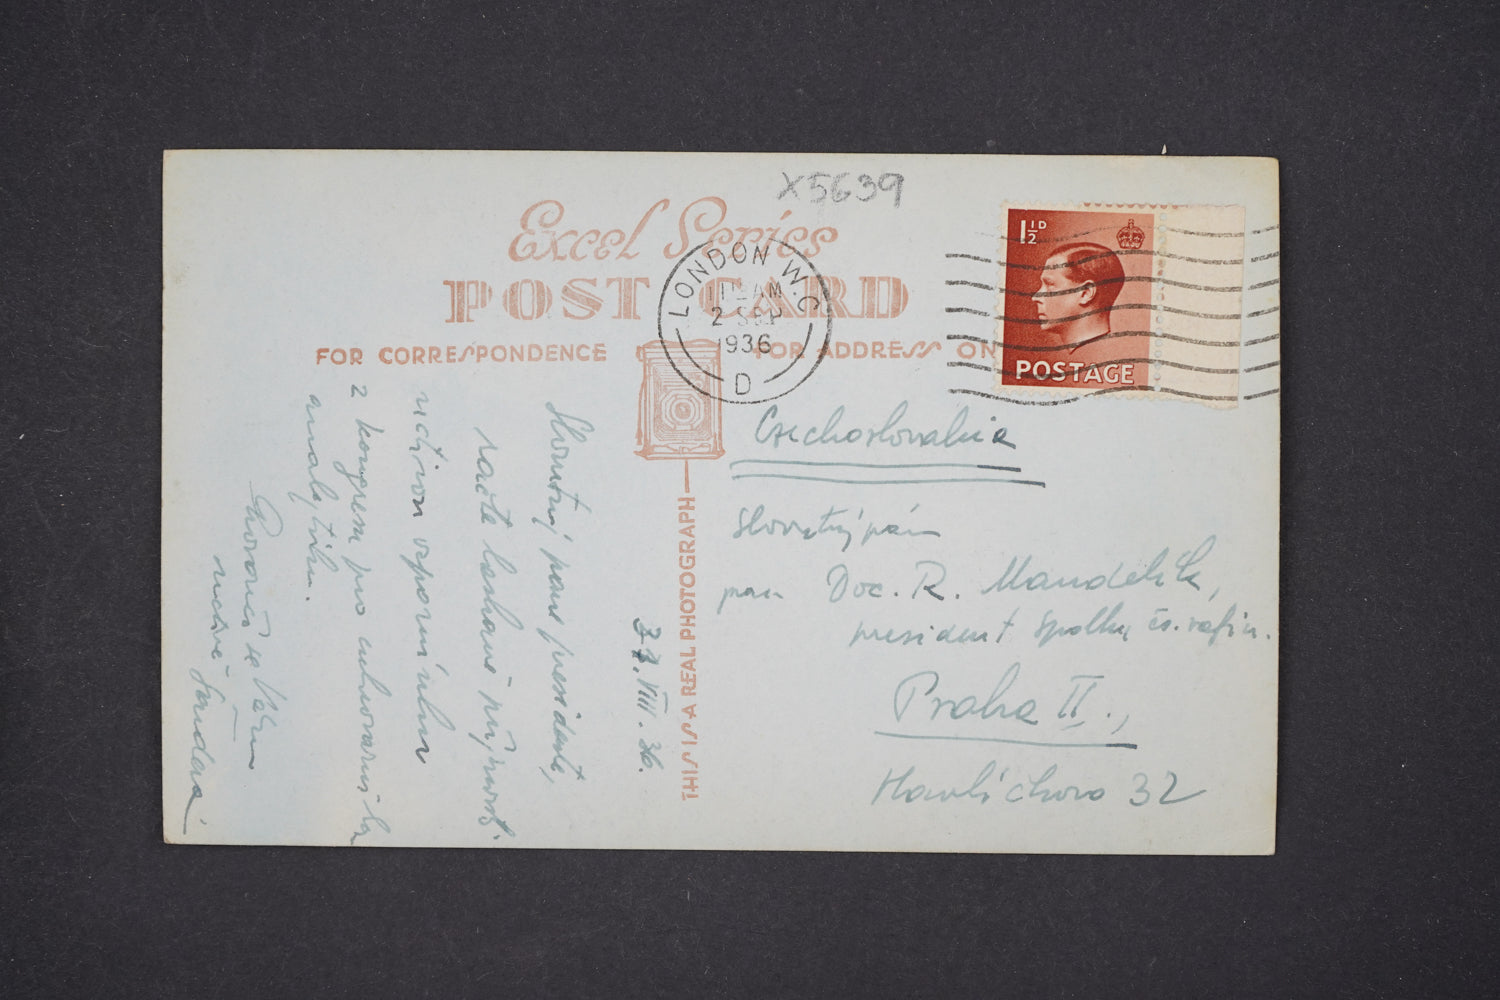 X5639
Excel Series
POST CARD
FOR CORRESPONDENCE
FOR ADDRESS ON
LONDON W.C
11 AM
2 SEP
1936
D
1½D
POSTAGE
THIS IS A REAL PHOTOGRAPH
VIII. 36.
Slovutný pane presidente,
račte laskavě přijmout
uctivou vzpomínku
z kongresu pro cukrovarnickou
analytiku.
Poroučí se Vám
uctivě Šandera
Czechoslovakia
Slovutný pán
pan Doc. R. Mandelík,
president Spolku čs. rafin.
Praha II.,
Havlíčkova 32